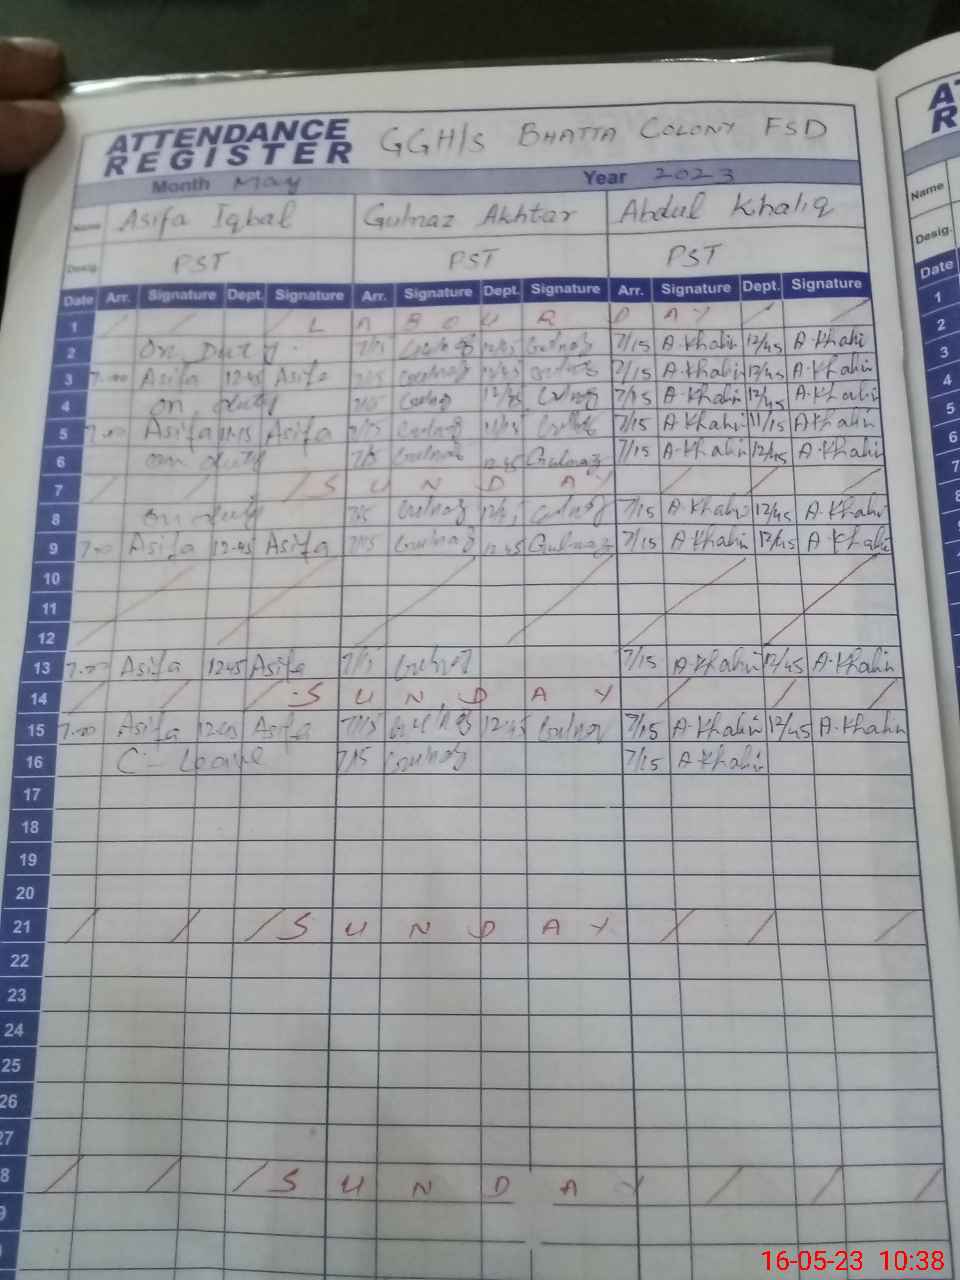 ATTENDANCE REGISTER GGH/S BHATTA COLONY FSD
Month May Year 2023
Name Asifa Iqbal Gulnaz Akhtar Abdul Khaliq
Desig. PST PST PST
Date Arr. Signature Dept. Signature Arr. Signature Dept. Signature Arr. Signature Dept. Signature
1 LABOUR DAY
2 On Duty 7/15 Gulnaz 12/45 Gulnaz 7/15 A.Khaliq 12/45 A.Khaliq
3 7.00 Asifa 12.45 Asifa 7/15 Gulnaz 12/45 Gulnaz 7/15 A.Khaliq 12/45 A.Khaliq
4 on duty 7/15 Gulnaz 12/45 Gulnaz 7/15 A.Khaliq 12/45 A.Khaliq
5 7.00 Asifa 11.15 Asifa 7/15 Gulnaz 11/15 Gulnaz 7/15 A.Khaliq 11/15 A.Khaliq
6 on duty 7/15 Gulnaz 12.45 Gulnaz 7/15 A.Khaliq 12/45 A.Khaliq
7 SUNDAY
8 on duty 7/15 Gulnaz Gulnaz 7/15 A.Khaliq 12/45 A.Khaliq
9 7.00 Asifa 12.45 Asifa 7/15 Gulnaz 12.45 Gulnaz 7/15 A.Khaliq 12/45 A.Khaliq
10
11
12
13 7.00 Asifa 12.45 Asifa 7/15 Gulnaz 7/15 A.Khaliq 12/45 A.Khaliq
14 SUNDAY
15 7.00 Asifa 12.45 Asifa 7/15 Gulnaz 12.45 Gulnaz 7/15 A.Khaliq 12/45 A.Khaliq
16 C-Leave 7/15 Gulnaz 7/15 A.Khaliq
17
18
19
20
21 SUNDAY
22
23
24
25
26
27
8 SUNDAY
9
A
R
Name
Desig.
Date
1
2
3
4
5
6
7
8
9
10
11
12
13
14
15
16-05-23 10:38